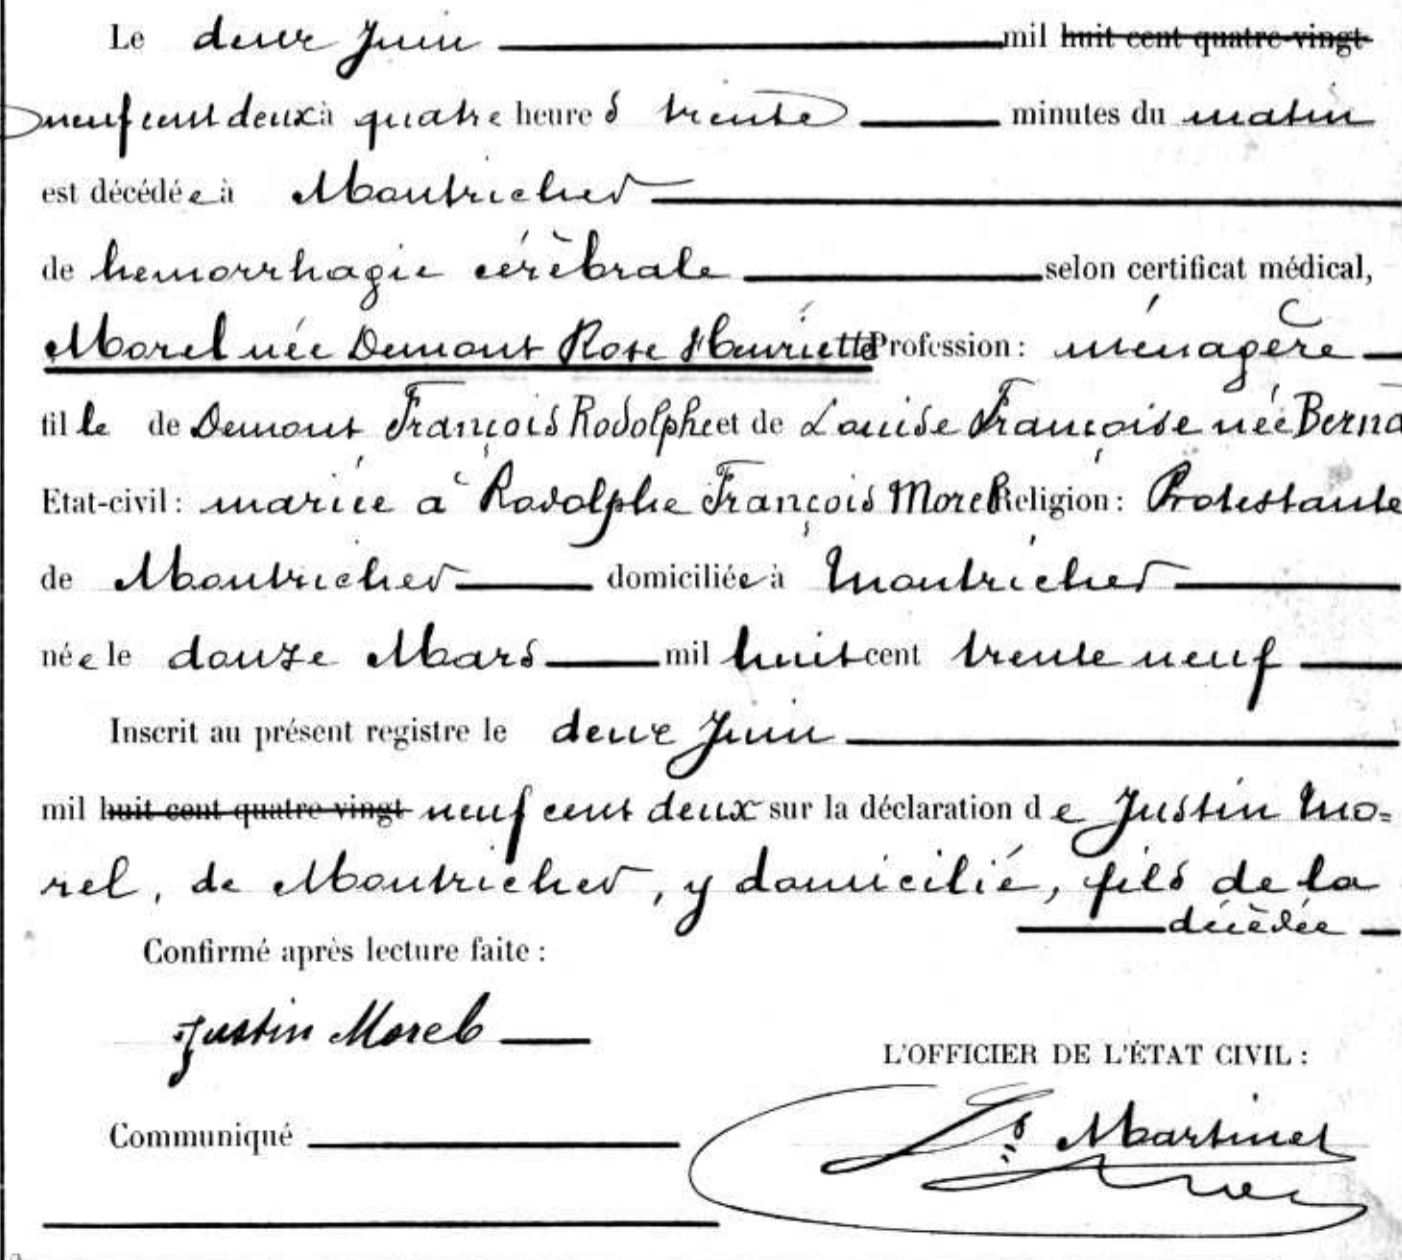 Le deux Juin mil huit cent quatre-vingt
neuf cent deux à quatre heures trente minutes du matin
est décédée à Montricher
de hemorrhagie cérèbrale selon certificat médical,
Morel née Demont Rose Henriette Profession : ménagère
fille de Demont François Rodolphe et de Louise Françoise née
Etat-civil : mariée à Rodolphe François Morel Religion : Protestante
de Montricher domiciliée à Montricher
née le douze Mars mil huit cent trente neuf
Inscrit au présent registre le deux Juin
mil huit cent quatre-vingt neuf cent deux sur la déclaration de Justin Mo=
rel, de Montricher, y domicilié, fils de la
décèdée
Confirmé après lecture faite :
Justin Morel
L'OFFICIER DE L'ÉTAT CIVIL :
Ls Martinet
Communiqué